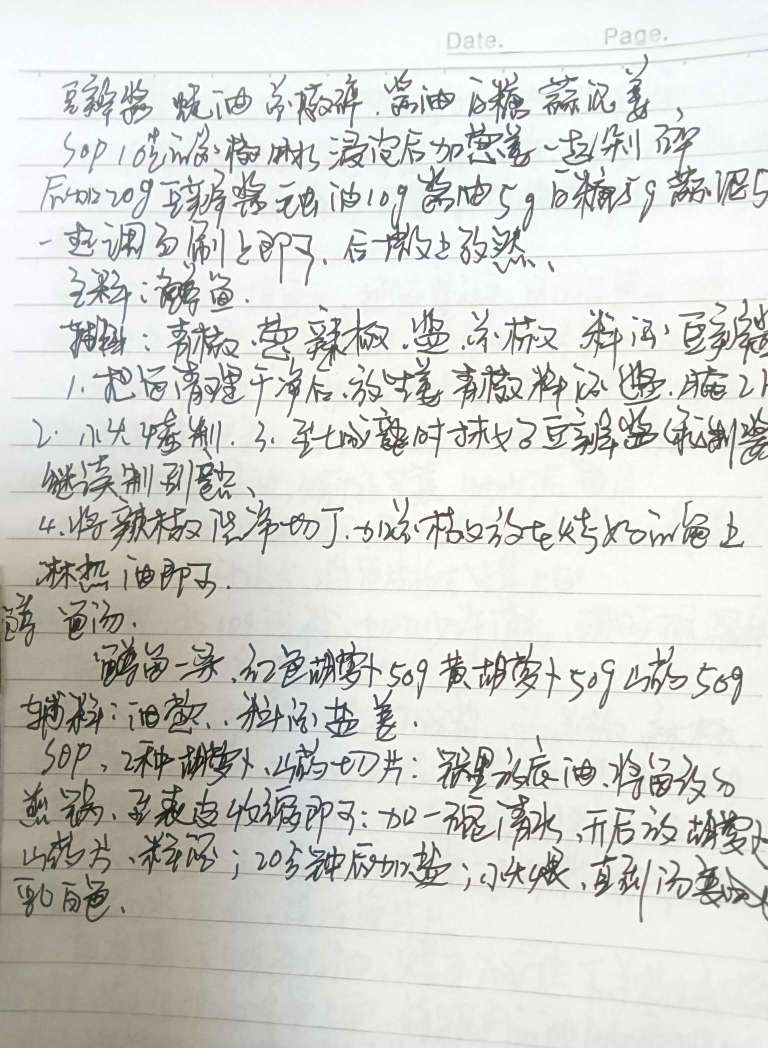 Date. Page.
豆瓣酱 蚝油 茶椒碎 酱油 白糖 蒜泥 姜、
SOP 10克 椒用水浸泡后加葱姜一起剁碎
后加20g豆瓣酱 蚝油10g 酱油5g 白糖5g 蒜泥5
一起调匀 刷上即可、后 撒上孜然、
主料：鲟鱼.
辅料：青椒、葱、辣椒、盐、茶椒 料酒、豆瓣酱
1. 把鱼清理干净后、放 姜 青椒 料酒 盐、腌2h
2. 小火烤制. 3. 至七成熟时抹好豆瓣酱(秘制酱
继续制到熟、
4. 将辣椒洗净切丁、加茶椒放在烤好的鱼上
淋热油即可.
鲟鱼汤.
鲟鱼一条、红色胡萝卜50g 黄胡萝卜50g 山药50g
辅料：油 葱、料酒 盐 姜.
SOP、2种胡萝卜、山药切片：锅里放底油、将鱼放
煎 锅、至表皮收缩即可：加一 清水、开后放胡萝卜
山药片、料酒；20分钟后加盐；小火煨、直到汤变成
乳白色.